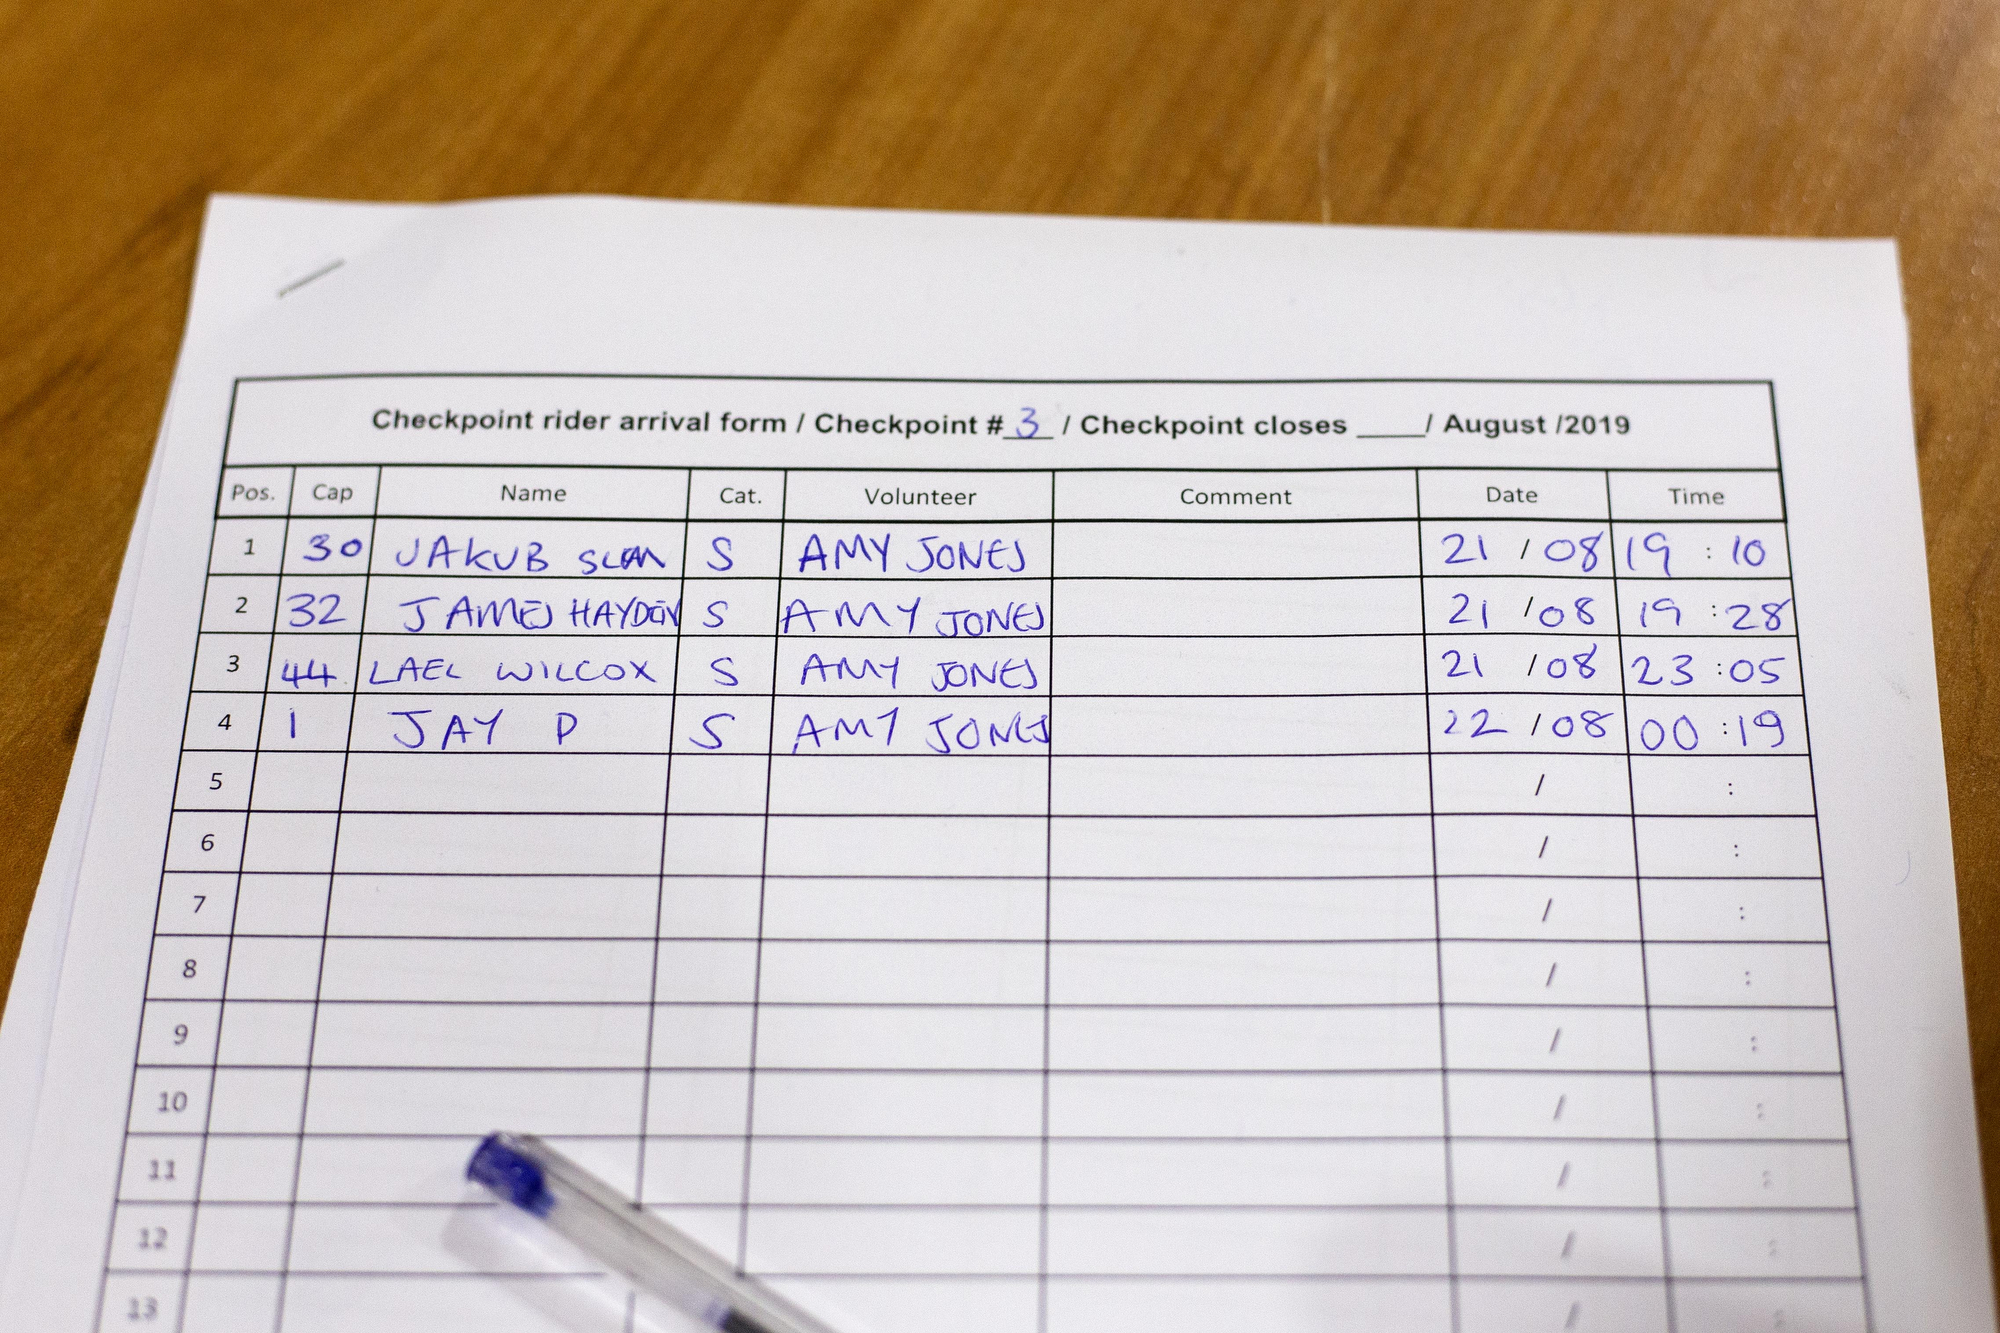 Checkpoint rider arrival form / Checkpoint # 3 / Checkpoint closes ____/ August /2019
Pos. Cap Name Cat. Volunteer Comment Date Time
1 30 JAKUB S AMY JONES 21 / 08 19 : 10
2 32 JAMES HAYDEN S AMY JONES 21 / 08 19 : 28
3 44 LAEL WILCOX S AMY JONES 21 / 08 23 : 05
4 1 JAY P S AMY JONES 22 / 08 00 : 19
5 / :
6 / :
7 / :
8 / :
9 / :
10 / :
11 / :
12 / :
13 / :